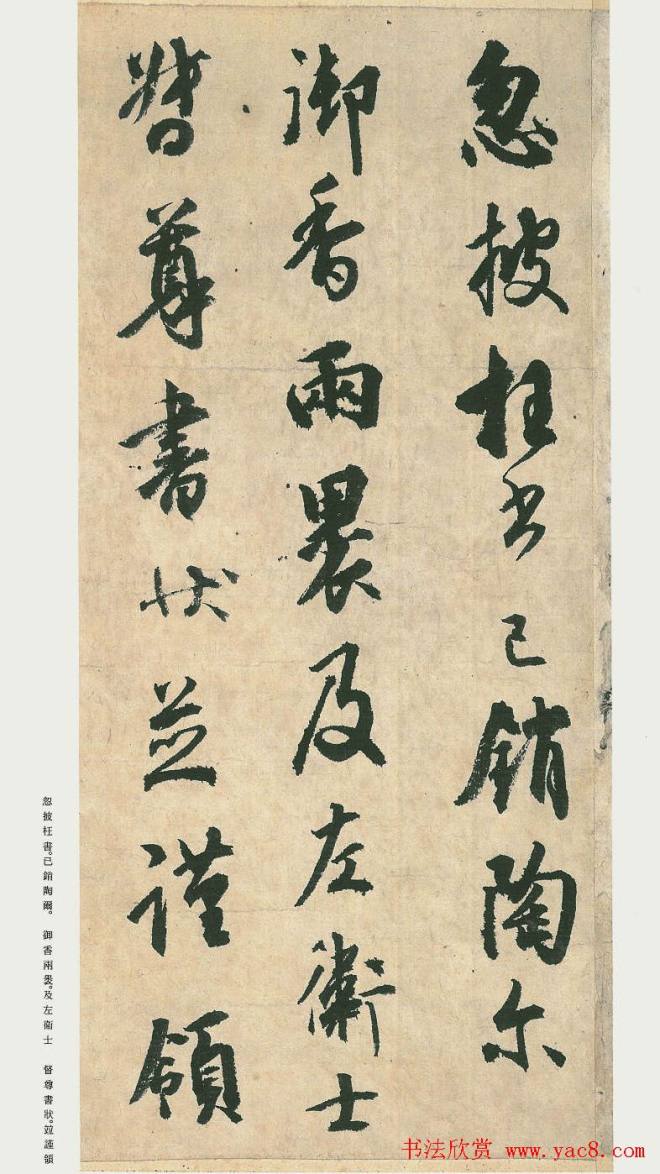 忽披枉书已銷陶尔
御香兩裹及左衛士
督尊書狀並謹領
忽披枉書。已銷陶爾。 御香兩裹。及左衛士 督尊書狀。竝謹領
书法欣赏 www.yac8.com